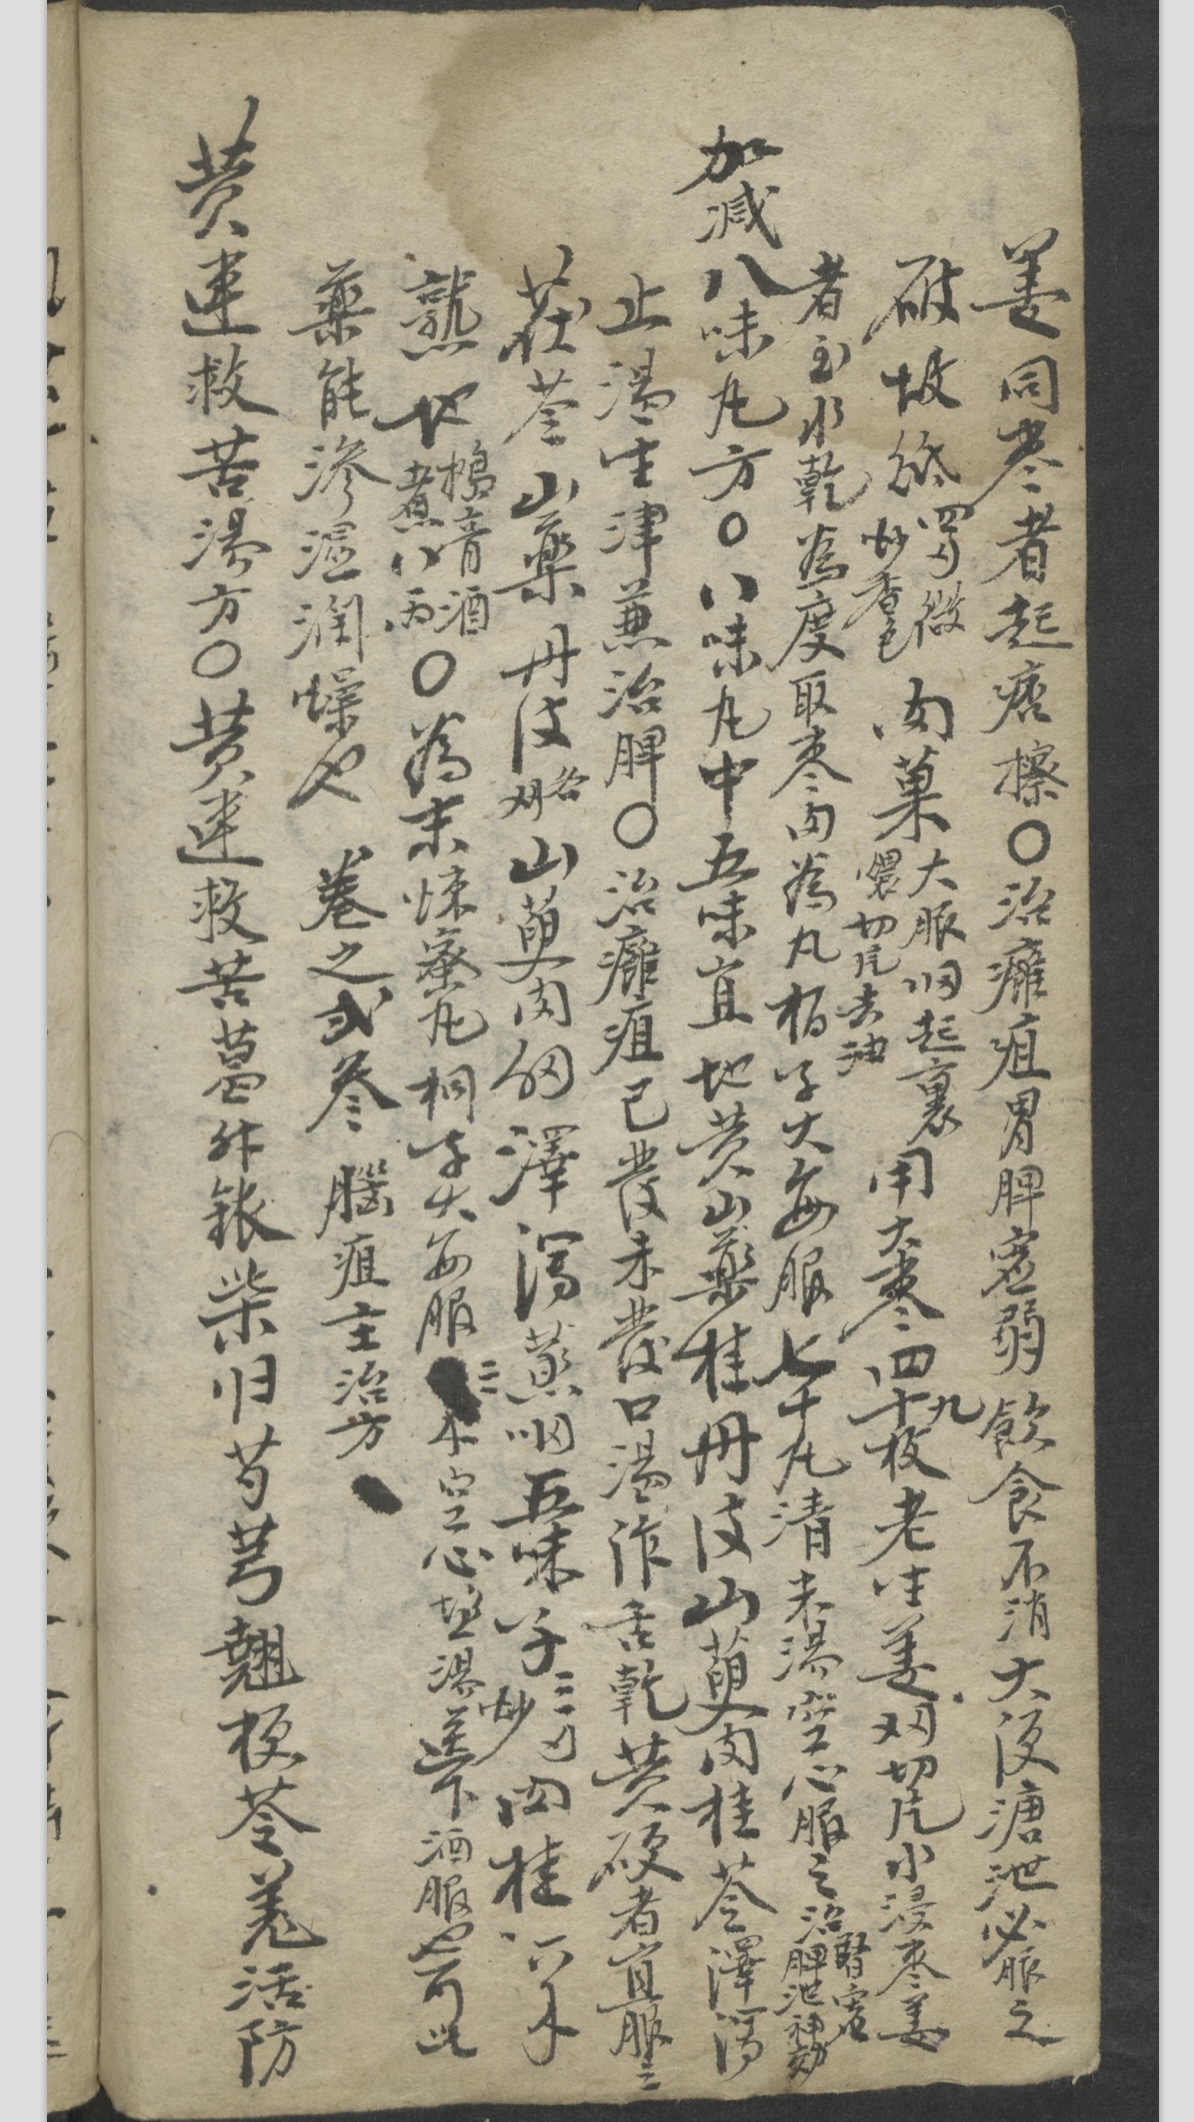 姜同枣者起痞擦〇治癰疽胃脾虛弱飲食不消大便溏泄必服之
破故紙四刄微炒香色肉菓大服切起裏儇切片去油用大枣四十九枚老生姜刄切片水浸枣姜
者至水乾為度取枣肉為丸栢子大每服七十丸清米湯空心服之治腎虛脾泄神効
加减八味丸方〇八味丸中五味宜地黄山藥桂丹皮山萸肉桂苓澤瀉
止渴生津兼治脾〇治癰疽已發未發口渴作舌乾黄硬者宜服之
茯苓山藥丹皮各刄山萸肉刄澤瀉蒸五味子炒肉桂六不
熟地搗音酒煮八丙〇為末煉蜜丸桐子大每服三不空心塩湯送下酒服也可此
藥能滲湿潤燥也 卷之弍叁 腦疽主治方
黄連救苦湯方〇黄連救苦葛升銀柴归芍芎翹梗苓羌活防